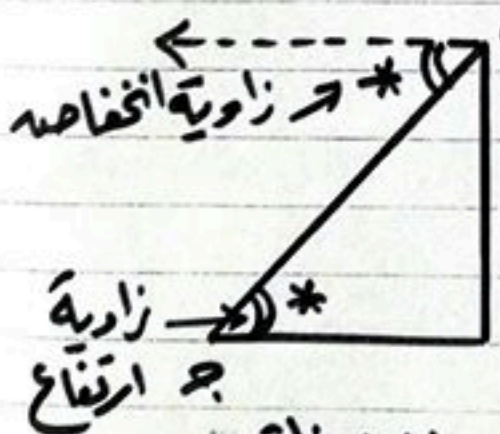 زاوية انخفاض
زاوية
ارتفاع
جـ